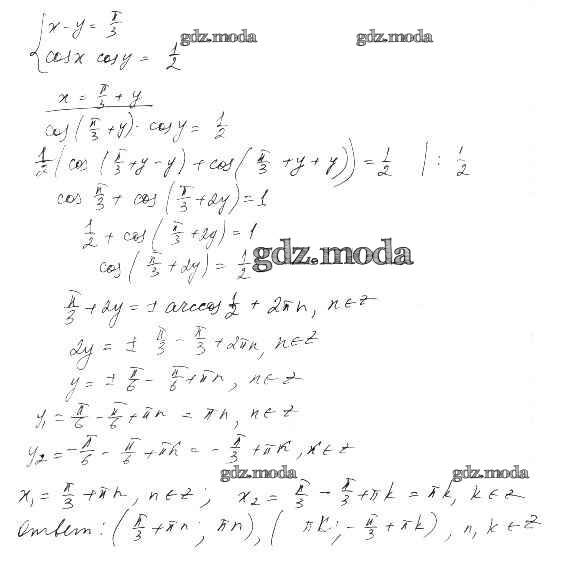 x - y = π/3
gdz.moda gdz.moda
cosx cosy = 1/2
x = π/3 + y
cos(π/3 + y) · cosy = 1/2
1/2 (cos(π/3 + y - y) + cos(π/3 + y + y)) = 1/2 | : 1/2
cos π/3 + cos(π/3 + 2y) = 1
1/2 + cos(π/3 + 2y) = 1
gdz.moda
cos(π/3 + 2y) = 1/2
π/3 + 2y = ± arccos 1/2 + 2πn, n∈Z
2y = ± π/3 - π/3 + 2πn, n∈Z
y = ± π/6 - π/6 + πn, n∈Z
y₁ = π/6 - π/6 + πn = πn, n∈Z
y₂ = -π/6 - π/6 + πk = -π/3 + πk, k∈Z
gdz.moda gdz.moda
x₁ = π/3 + πn, n∈Z; x₂ = π/3 - π/3 + πk = πk, k∈Z
Ответ: (π/3 + πn; πn), (πk; -π/3 + πk), n, k∈Z